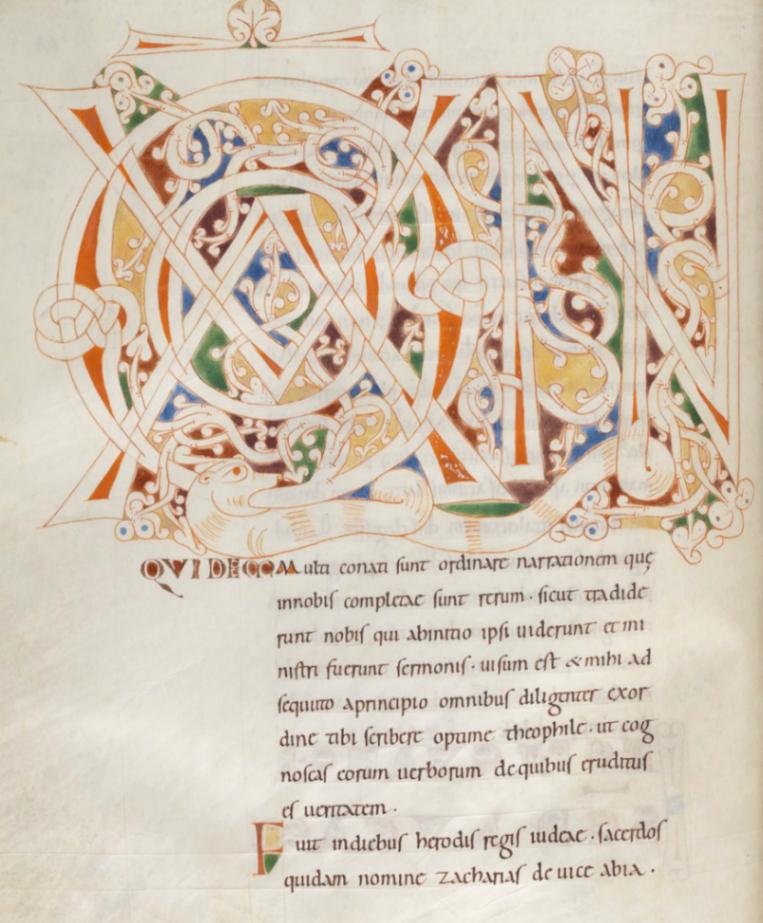 QUŌN
QVIDEM Multi conati sunt ordinare narrationem quę
innobis completae sunt rerum · sicut tradide
runt nobis qui abinitio ipsi uiderunt et mi
nistri fuerunt sermonis · uisum est & mihi ad
sequuto aprincipio omnibus diligenter exor
dine tibi scribere optime theophile · ut cog
noscas eorum uerborum dequibus eruditus
es ueritatem ·
Fuit indiebus herodis regis iudeae · sacerdos
quidam nomine zacharias de uice abia ·